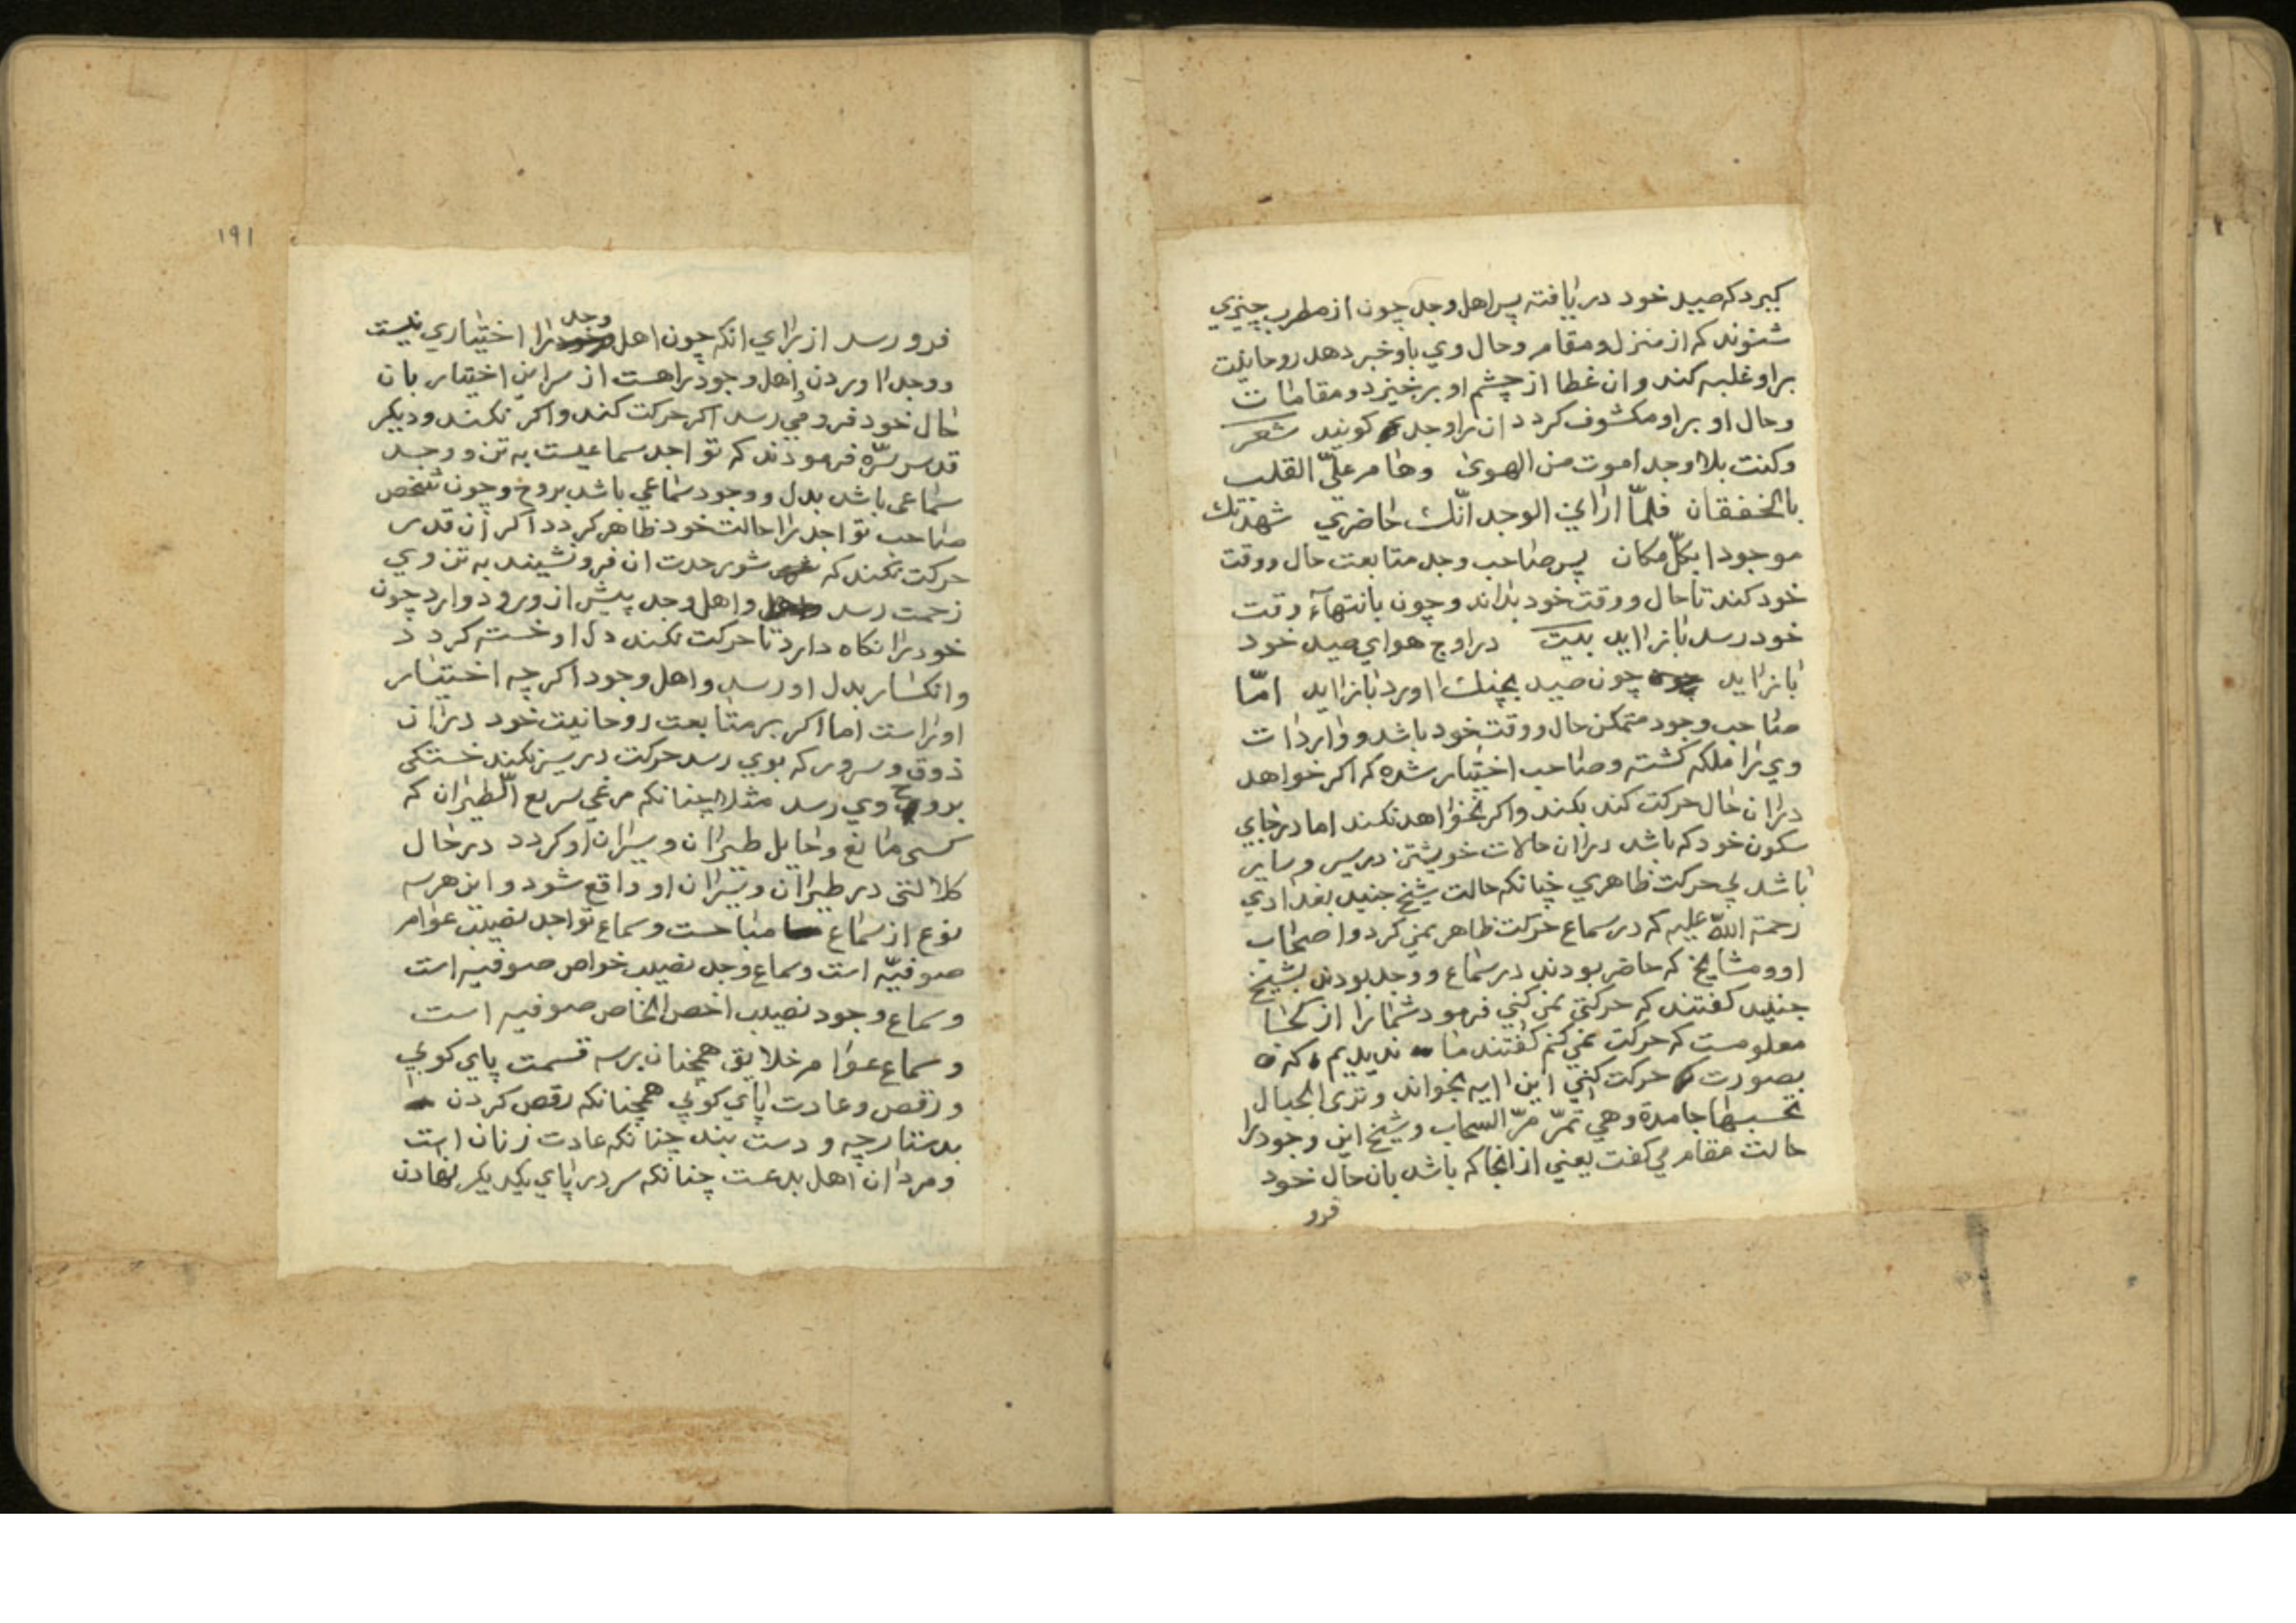 کیرد که صید خود دریافته پس اهل وجد چون از مطرب چیزی
شنوند که از منزل و مقام و حال وی باو خبر دهد روحانیت
براو غلبه کند و ان غطا از چشم او برخیزد و مقامات
و حال او براو مکشوف کردد ان را وجد کویند شعر
وکنت بلا وجد اموت من الهوی وهام علیّ القلب
بالخفقان فلمّا ارانی الوجد انّک حاضری شهدتک
موجودا بکلّ مکان پس صاحب وجد متابعت حال و وقت
خود کند تا حال و وقت خود براند و چون بانتهآء وقت
خود رسد باز اید بیت در اوج هوای صید خود
باز اید چون صید بچنک اورد باز اید امّا
صاحب وجود متمکن حال و وقت خود باشد و واردات
وی را ملکه کشته و صاحب اختیار شده که اکر خواهد
دران حال حرکت کند بکند و اکر نخواهد نکند اما در جای
سکون خود که باشد دران حالات خویشتن در سیر و سایر
باشد بی حرکت ظاهری چنانکه حالت شیخ جنید بغدادی
رحمة اللّه علیه که در سماع حرکت ظاهر نمی کرد و اصحاب
او و مشایخ که حاضر بودند در سماع و وجد بودند بشیخ
جنید کفتند که حرکتی نمی کنی فرمود شما را از کجا
معلومست که حرکت نمی کنم کفتند ما ندیدیم که
بصورت حرکت کنی این ایه بخواند وتری الجبال
تحسبها جامدة وهی تمرّ مرّ السحاب و شیخ این وجود را
حالت مقام می کفت یعنی از انجا که باشد بان حال خود
فرو
١٩١
فرو رسد از برای انکه چون اهل وجد را اختیاری نیست
و وجد اوردن اهل وجود راهست از سر این اختیار بان
حال خود فرو می رسد اکر حرکت کند و اکر نکند و دیکر
قدس سرّه فرموذند که تواجد سماعیست به تن و وجد
سماعی باشد بدل و وجود سماعی باشد بروح و چون شخص
صاحب تواجد را حالت خود ظاهر کردد اکر ان قدر
حرکت نکند که شور حدت ان فرو نشیند به تن وی
زحمت رسد و اهل وجد پیش از ورود وارد چون
خود را نکاه دارد تا حرکت نکند دل او خسته کردد
و انکسار بدل او رسد و اهل وجود اکر چه اختیار
او راست اما اکر بر متابعت روحانیت خود دران
ذوق و سرور که بوی رسد حرکت در سیر نکند خستکی
بروح وی رسد مثلا چنانکه مرغی سریع الطیران که
کسی مانع و حایل طیران و سیران او کردد در حال
کلالتی در طیران و سیران او واقع شود و این هر سه
نوع از سماع مباحست و سماع تواجد نصیب عوام
صوفیّه است و سماع وجد نصیب خواص صوفیه است
و سماع وجود نصیب اخص الخاص صوفیه است
و سماع عوام خلایق همچنان بر سه قسمت پای کوبی
و رقص و عادت پای کوبی همچنانکه رقص کردن
بدستارچه و دست بند چنانکه عادت زنان است
و مردان اهل بدعت چنانکه سر در پای یکدیکر نهادن